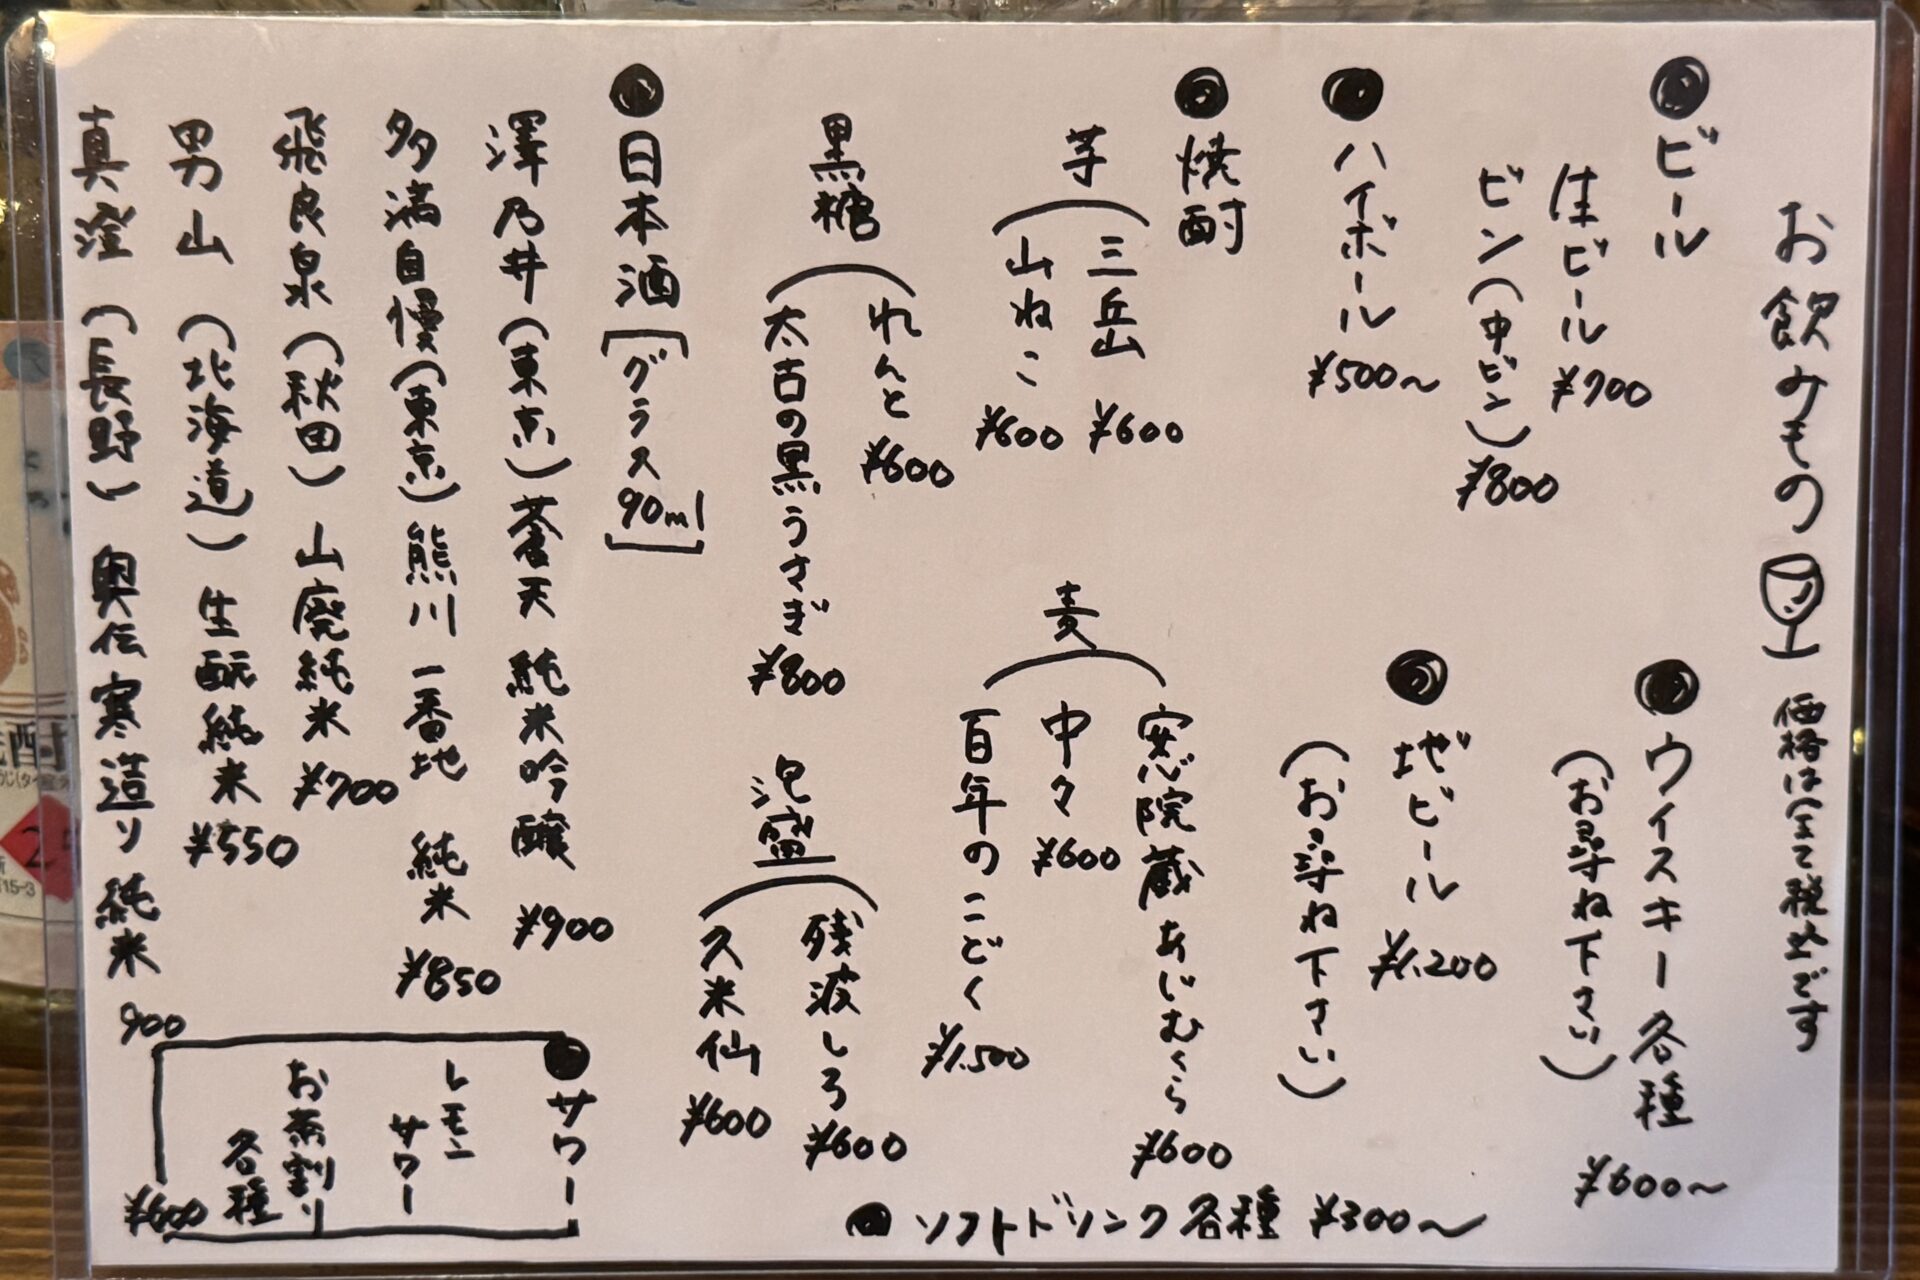 お飲みもの 価格は全て税込です
●ビール
生ビール ¥700
ビン(中ビン) ¥800
●ウイスキー各種 ¥600〜
(お尋ね下さい)
●ハイボール ¥500〜
●地ビール ¥1,200
(お尋ね下さい)
●焼酎
芋
三岳 ¥600
山ねこ ¥600
麦
安心院蔵 あじむくら ¥600
中々 ¥600
百年のこどく ¥1,500
黒糖
れんと ¥600
太古の黒うさぎ ¥800
泡盛
残波しろ ¥600
久米仙 ¥600
●日本酒 [グラス 90ml]
澤乃井(東京)蒼天 純米吟醸 ¥900
多満自慢(東京)熊川一番地 純米 ¥850
飛良泉(秋田)山廃純米 ¥700
男山(北海道)生酛純米 ¥550
真澄(長野)奥伝寒造り純米 900
●サワー
レモン
サワー
お茶割り
各種
¥600
●ソフトドリンク各種 ¥300〜